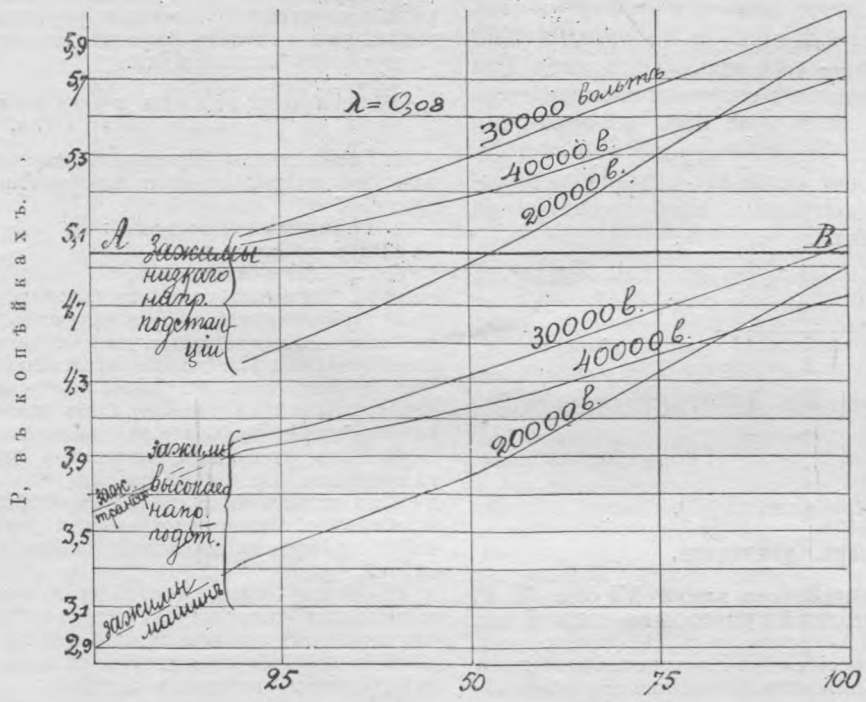 P, въ копѣйкахъ.
5,9
5,7
5,3
5,1
4,7
4,3
3,9
3,5
3,1
2,9
λ=0,08
30000 вольтъ
40000 в.
20000 в.
A
B
Зажимы
низкаго
напр.
подстан-
ціи
30000 в.
40000 в.
20000 в.
зажимы
высокаго
напр.
подст.
заж.
трансф.
зажимы
машинъ
25
50
75
100